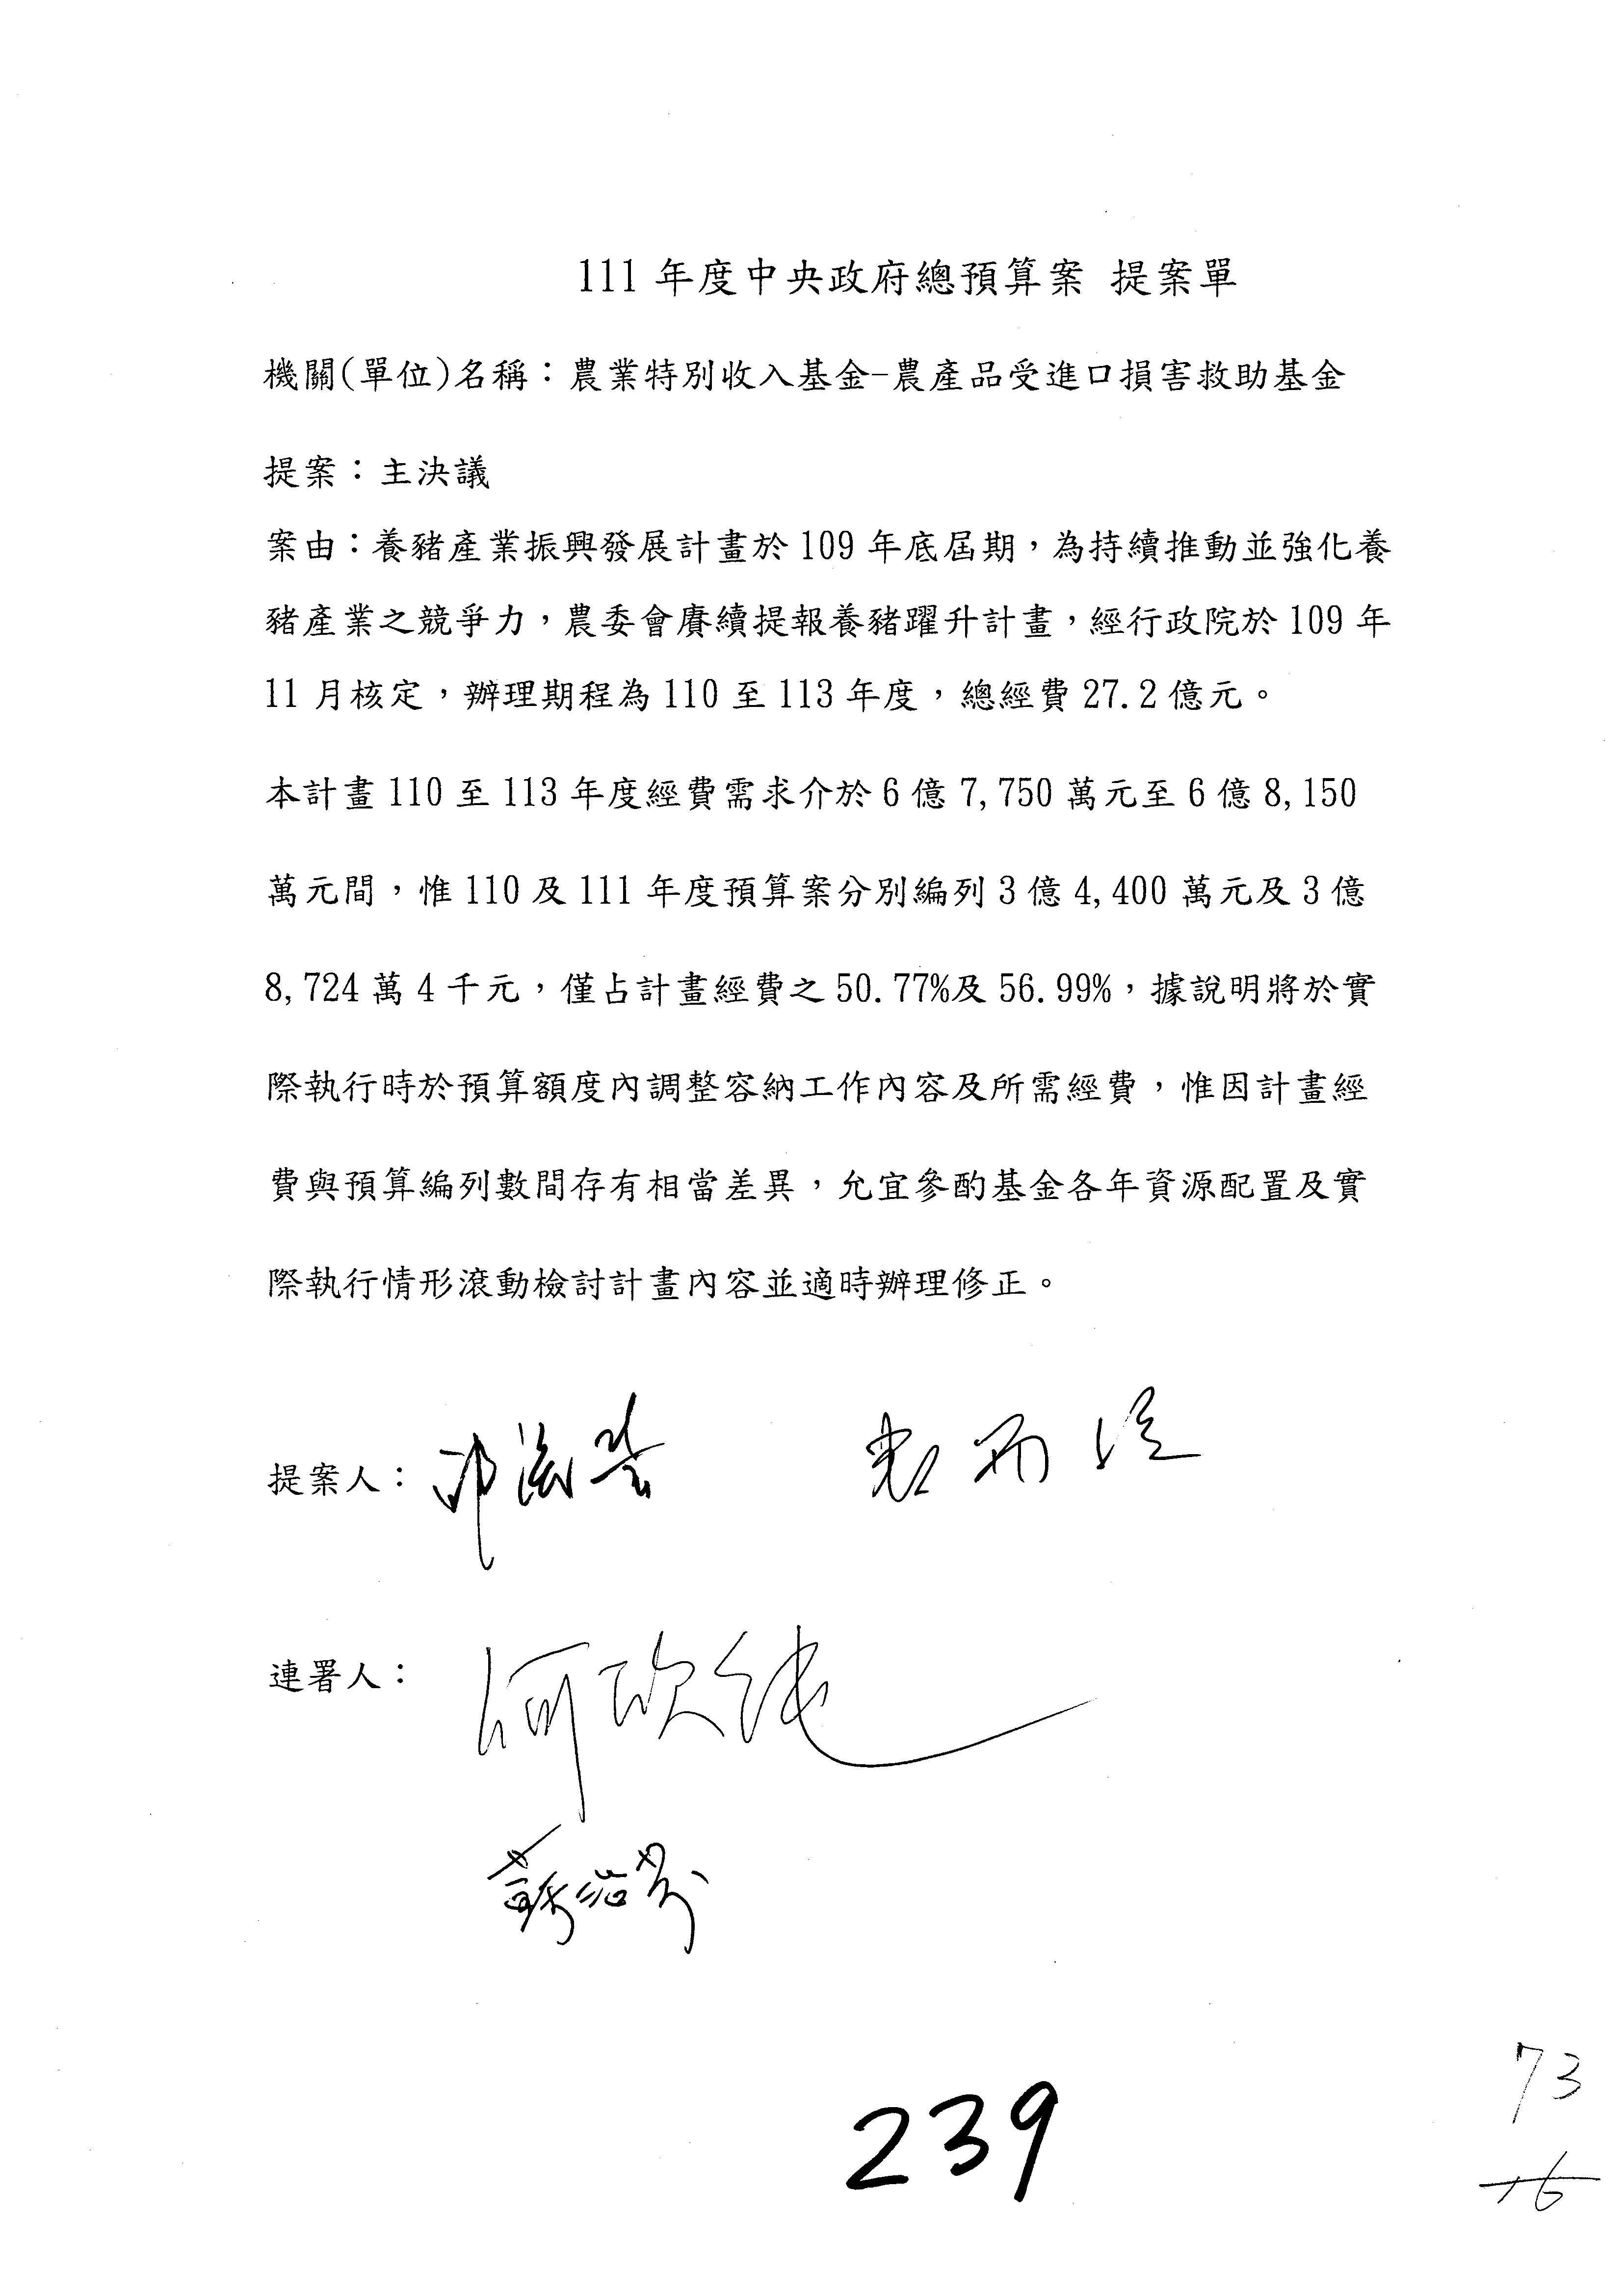 111 年度中央政府總預算案 提案單
機關(單位)名稱：農業特別收入基金-農產品受進口損害救助基金
提案：主決議
案由：養豬產業振興發展計畫於 109 年底屆期，為持續推動並強化養
豬產業之競爭力，農委會賡續提報養豬躍升計畫，經行政院於 109 年
11 月核定，辦理期程為 110 至 113 年度，總經費 27.2 億元。
本計畫 110 至 113 年度經費需求介於 6 億 7,750 萬元至 6 億 8,150
萬元間，惟 110 及 111 年度預算案分別編列 3 億 4,400 萬元及 3 億
8,724 萬 4 千元，僅占計畫經費之 50.77%及 56.99%，據說明將於實
際執行時於預算額度內調整容納工作內容及所需經費，惟因計畫經
費與預算編列數間存有相當差異，允宜參酌基金各年資源配置及實
際執行情形滾動檢討計畫內容並適時辦理修正。
提案人：
連署人： 何欣純
蘇治芬
239
73
16